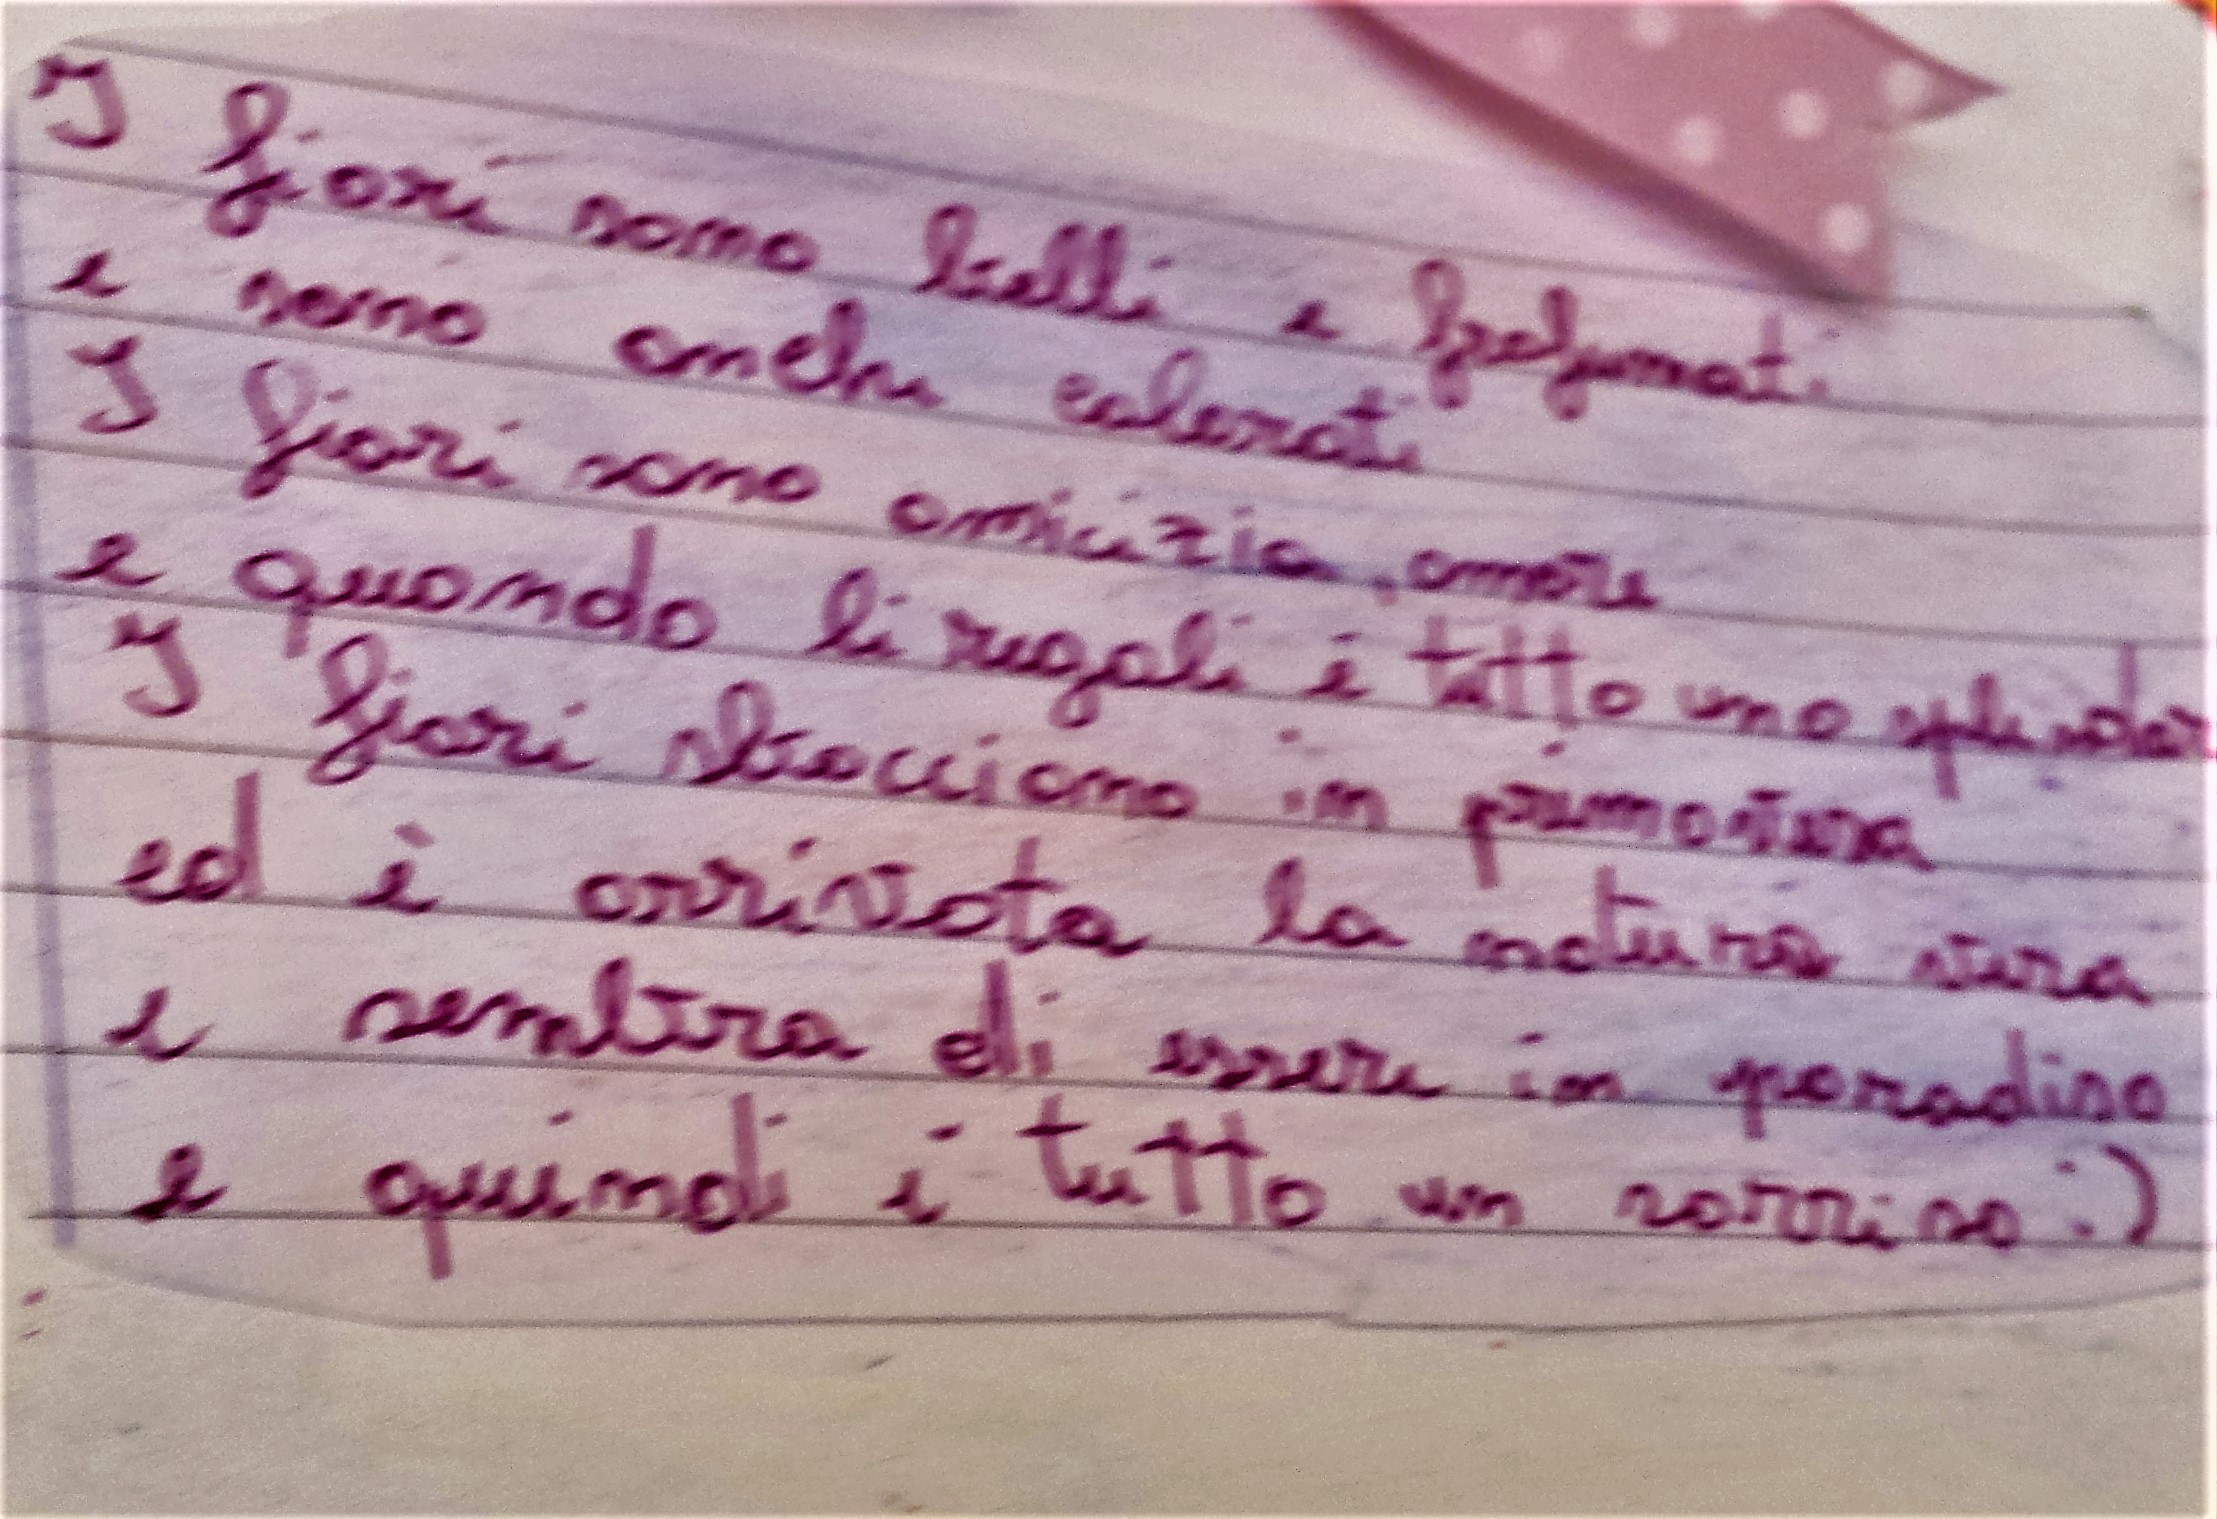 I fiori sono belli e profumati
e sono anche colorati
I fiori sono amicizia, amore
e quando li regali è tutto uno splendor
I fiori sbocciano in primavera
ed è arrivata la natura vera
e sembra di essere in paradiso
e quindi è tutto un sorriso :)